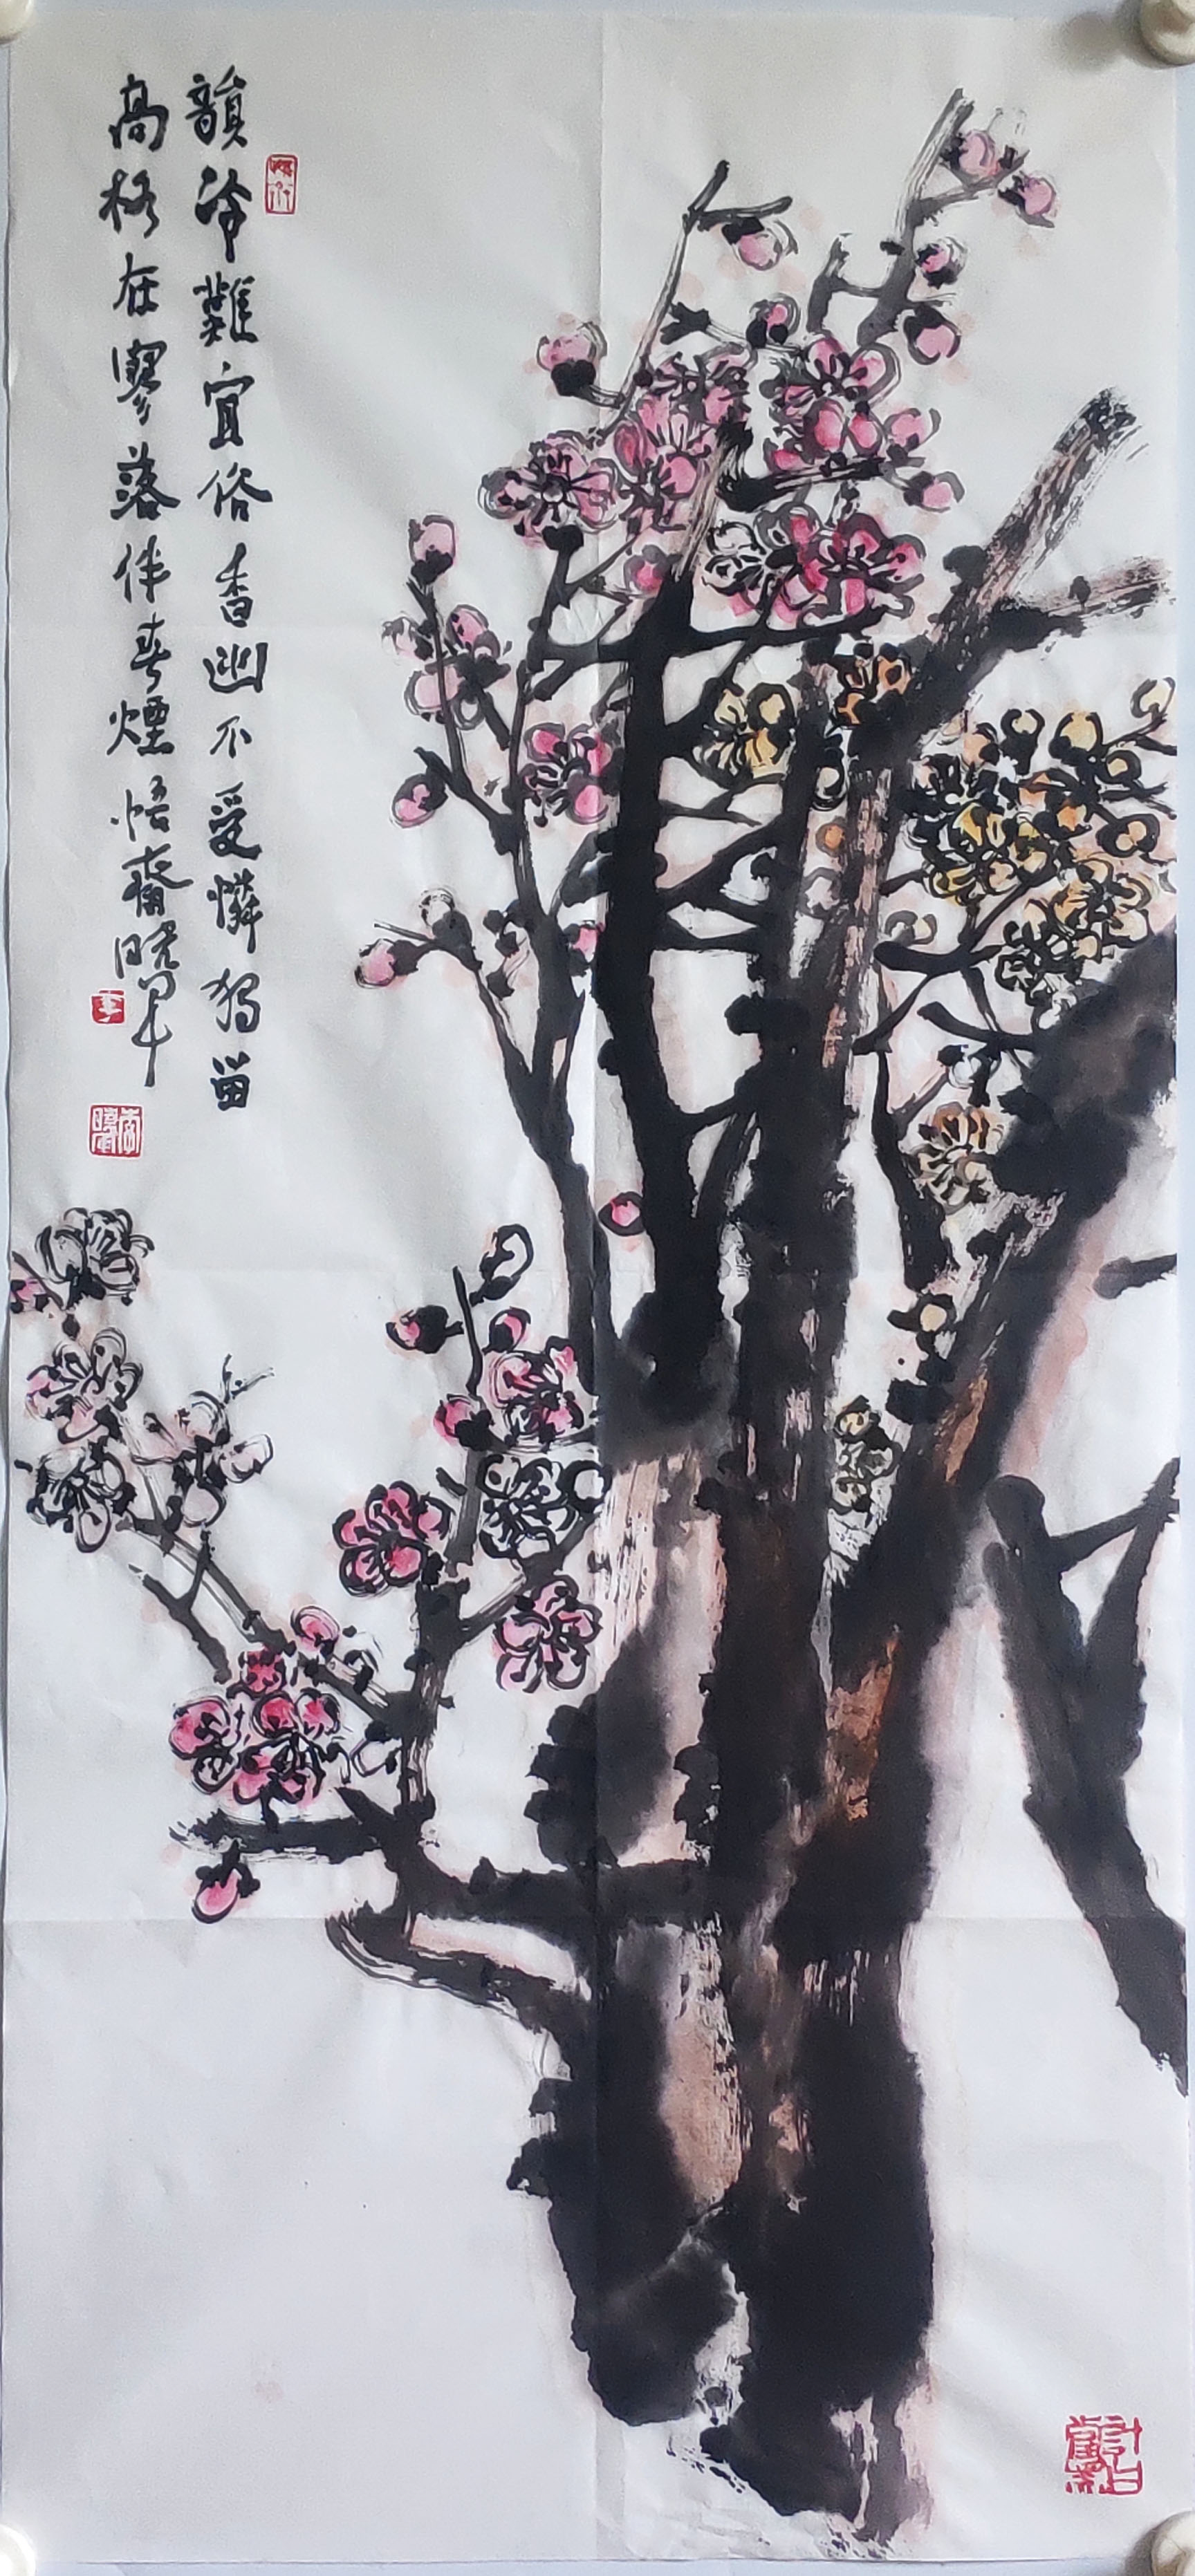 韻冷難宜俗香幽不受憐獨留
高格在寥落伴春煙悟齋曉軍